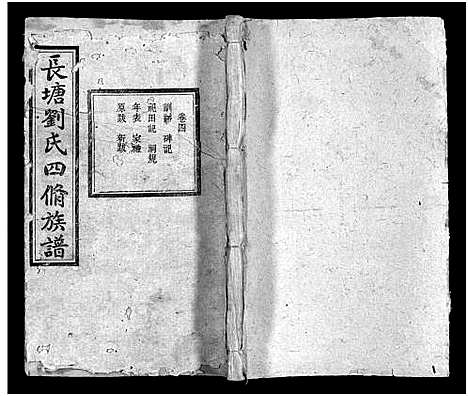 長塘劉氏四脩族譜
卷四
訓辭 碑記
祀田記 祠規
年表 家禮
原跋 新跋